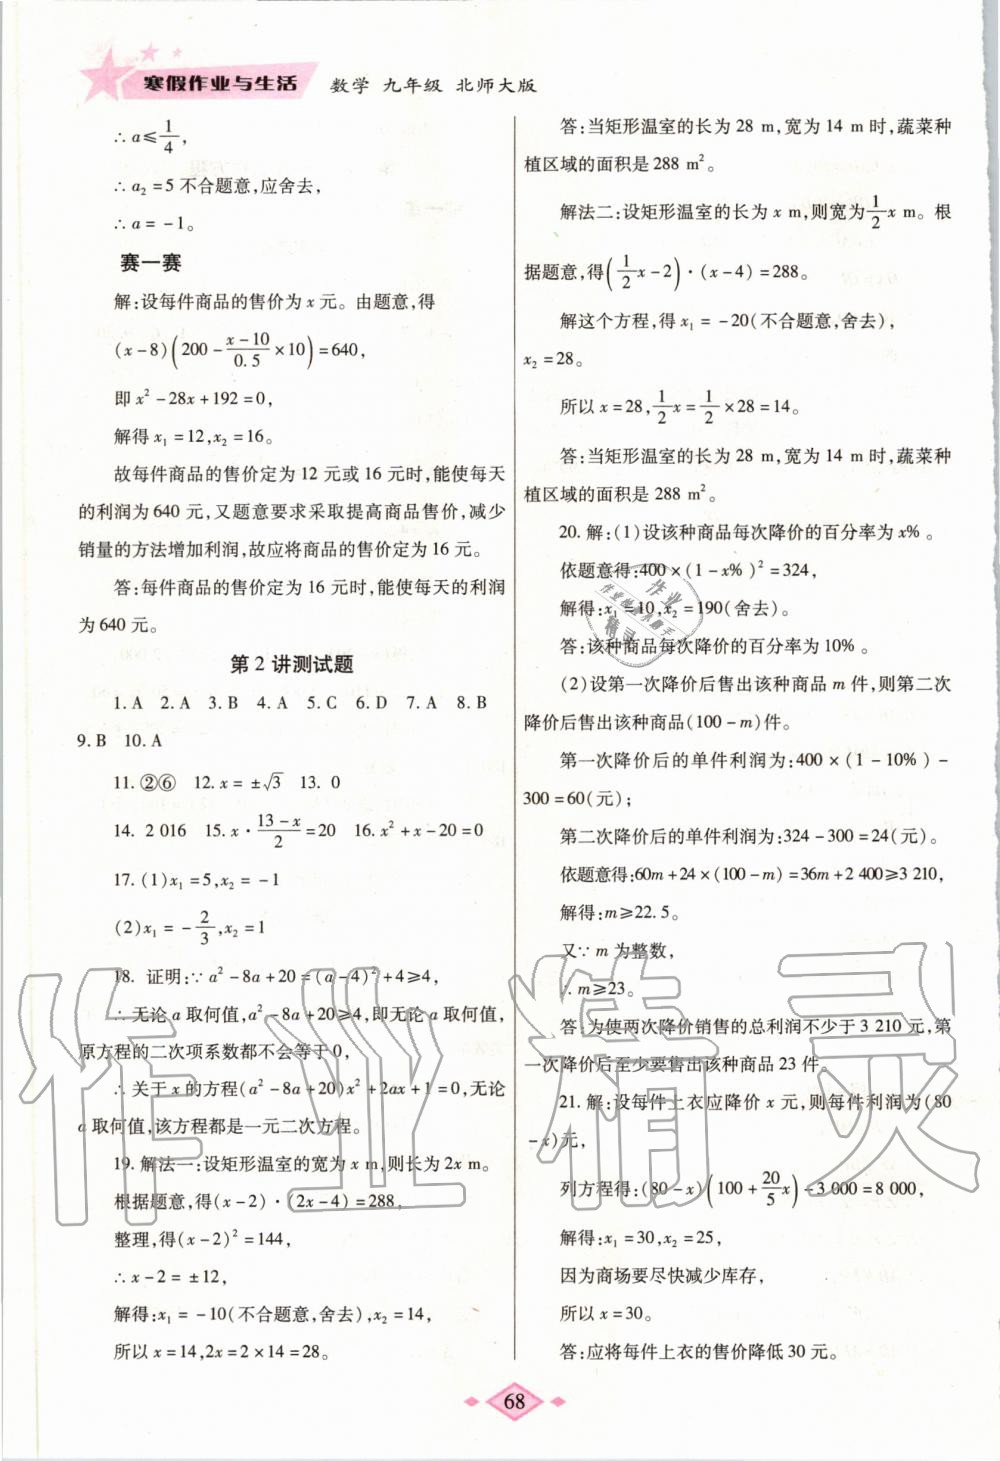 寒假作业与生活 数学 九年级 北师大版
∴a≤1/4,
∴a₂=5不合题意,应舍去,
∴a=-1。
赛一赛
解:设每件商品的售价为x元。由题意,得
(x-8)(200-(x-10)/0.5×10)=640,
即x²-28x+192=0,
解得x₁=12,x₂=16。
故每件商品的售价定为12元或16元时,能使每天
的利润为640元,又题意要求采取提高商品售价,减少
销量的方法增加利润,故应将商品的售价定为16元。
答:每件商品的售价定为16元时,能使每天的利润
为640元。
第2讲测试题
1.A 2.A 3.B 4.A 5.C 6.D 7.A 8.B
9.B 10.A
11.②⑥ 12.x=±√3 13.0
14.2 016 15.x·(13-x)/2=20 16.x²+x-20=0
17.(1)x₁=5,x₂=-1
(2)x₁=-2/3,x₂=1
18. 证明:∵a²-8a+20=(a-4)²+4≥4,
∴无论a取何值,a²-8a+20≥4,即无论a取何值,
原方程的二次项系数都不会等于0,
∴关于x的方程(a²-8a+20)x²+2ax+1=0,无论
a取何值,该方程都是一元二次方程。
19.解法一:设矩形温室的宽为x m,则长为2x m。
根据题意,得(x-2)·(2x-4)=288,
整理,得(x-2)²=144,
∴x-2=±12,
解得:x₁=-10(不合题意,舍去),x₂=14,
所以x=14,2x=2×14=28。
答:当矩形温室的长为28 m,宽为14 m时,蔬菜种
植区域的面积是288 m²。
解法二:设矩形温室的长为x m,则宽为1/2x m。根
据题意,得(1/2x-2)·(x-4)=288。
解这个方程,得x₁=-20(不合题意,舍去),
x₂=28。
所以x=28,1/2x=1/2×28=14。
答:当矩形温室的长为28 m,宽为14 m时,蔬菜种
植区域的面积是288 m²。
20.解:(1)设该种商品每次降价的百分率为x%。
依题意得:400×(1-x%)²=324,
解得:x₁=10,x₂=190(舍去)。
答:该种商品每次降价的百分率为10%。
(2)设第一次降价后售出该种商品m件,则第二次
降价后售出该种商品(100-m)件。
第一次降价后的单件利润为:400×(1-10%)-
300=60(元);
第二次降价后的单件利润为:324-300=24(元)。
依题意得:60m+24×(100-m)=36m+2 400≥3 210,
解得:m≥22.5。
又∵m为整数,
∴m≥23。
答:为使两次降价销售的总利润不少于3 210元,第
一次降价后至少要售出该种商品23件。
21.解:设每件上衣应降价x元,则每件利润为(80
-x)元,
列方程得:(80-x)(100+20/5x)-3 000=8 000,
解得:x₁=30,x₂=25,
因为商场要尽快减少库存,
所以x=30。
答:应将每件上衣的售价降低30元。
68
作业精灵